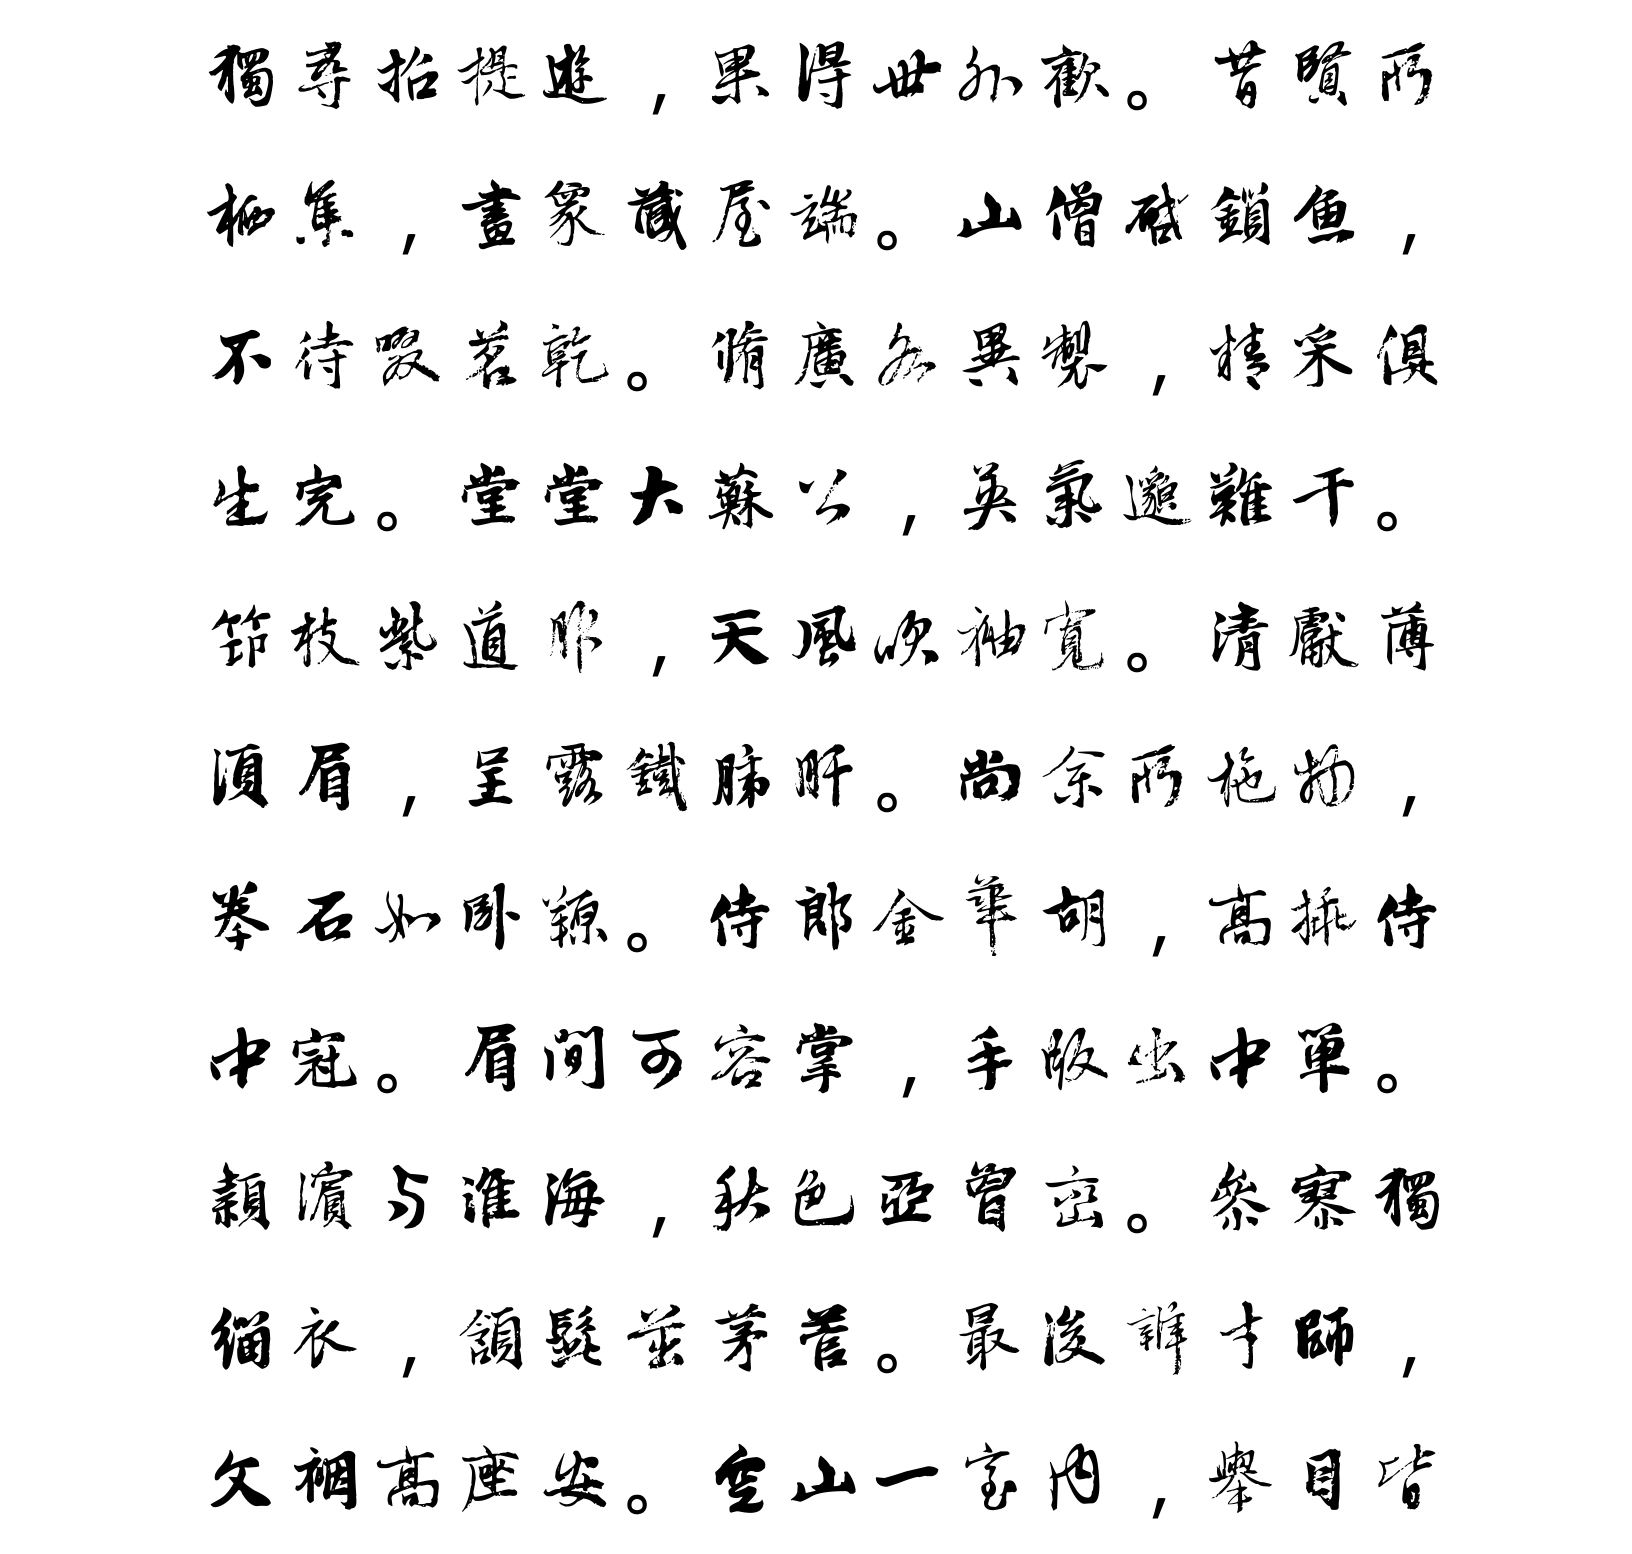 獨尋招提遊，果得世外歡。昔賢所
栖集，畫象藏屋端。山僧啟鎖魚，
不待啜茗乾。脩廣各異製，精采俱
生完。堂堂大蘇公，英氣邈難干。
筇枝紫道服，天風吹袖寬。清獻薄
須眉，呈露鐵肺肝。尚余所拖物，
拳石如卧羱。侍郎金華胡，高排侍
中冠。眉間可容掌，手版出中單。
潁濱与淮海，秋色亞曾巒。參寥獨
緇衣，頷髭茁茅菅。最後辯才師，
文裀高座安。空山一室內，舉目皆